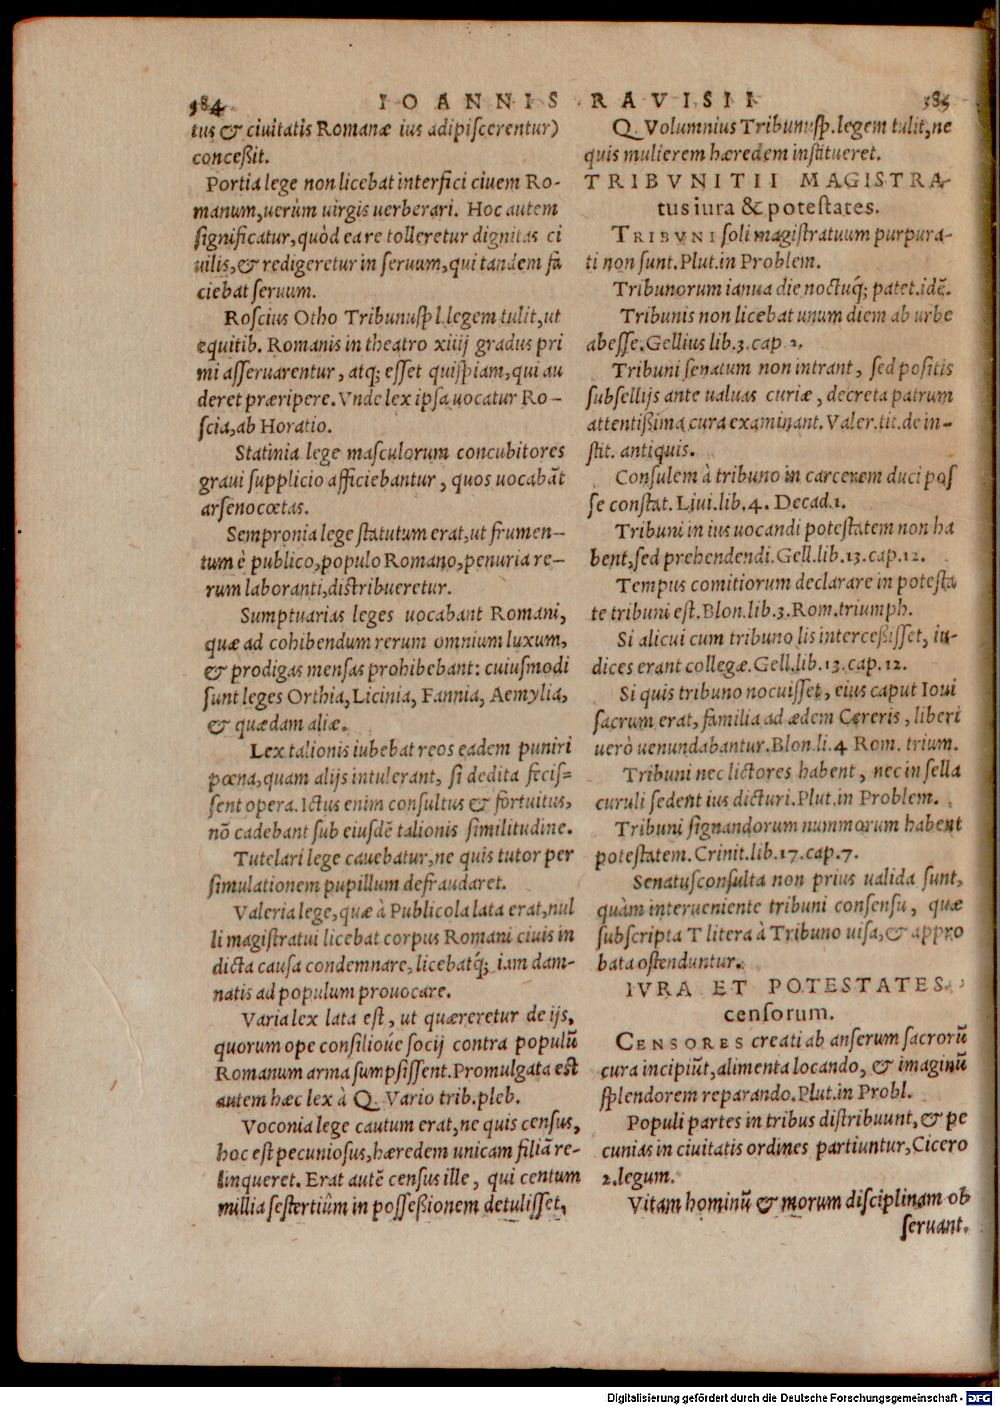 384 IOANNIS RAVISII 385
tus & ciuitatis Romanæ ius adipiscerentur)
conceßit.
Portia lege non licebat interfici ciuem Ro-
manum, uerùm uirgis uerberari. Hoc autem
significatur, quòd ea re tolleretur dignitas ci
uilis, & redigeretur in seruum, qui tandem fa
ciebat seruum.
Roscius Otho Tribunusp l. legem tulit, ut
equitib. Romanis in theatro xiiij gradus pri
mi asseruarentur, atq; esset quispiam, qui au
deret præripere. Vnde lex ipsa uocatur Ro-
scia, ab Horatio.
Statinia lege masculorum concubitores
graui supplicio afficiebantur, quos uocabāt
arsenocœtas.
Sempronia lege statutum erat, ut frumen-
tum è publico, populo Romano, penuria re-
rum laboranti, distribueretur.
Sumptuarias leges uocabant Romani,
quæ ad cohibendum rerum omnium luxum,
& prodigas mensas prohibebant: cuiusmodi
sunt leges Orthia, Licinia, Fannia, Aemylia,
& quædam aliæ.
Lex talionis iubebat reos eadem puniri
pœna, quam alijs intulerant, si dedita fecis=
sent opera. Ictus enim consultus & fortuitus,
nō cadebant sub eiusdē talionis similitudine.
Tutelari lege cauebatur, ne quis tutor per
simulationem pupillum defraudaret.
Valeria lege, quæ à Publicola lata erat, nul
li magistratui licebat corpus Romani ciuis in
dicta causa condemnare, licebatq́; iam dam-
natis ad populum prouocare.
Varia lex lata est, ut quæreretur de ijs,
quorum ope consilioúe socij contra populū
Romanum arma sumpsissent. Promulgata est
autem hæc lex à Q. Vario trib. pleb.
Voconia lege cautum erat, ne quis census,
hoc est pecuniosus, hæredem unicam filiā re-
linqueret. Erat autē census ille, qui centum
millia sestertiûm in possessionem detulisset,
Q. Volumnius Tribunusp. legem tulit, ne
quis mulierem hæredem institueret.
TRIBVNITII MAGISTRA-
tus iura & potestates.
TRIBVNI soli magistratuum purpura-
ti non sunt. Plut. in Problem.
Tribunorum ianua die noctuq́; patet. idē.
Tribunis non licebat unum diem ab urbe
abesse. Gellius lib. 3. cap 2.
Tribuni senatum non intrant, sed positis
subsellijs ante ualuas curiæ, decreta patrum
attentißima cura examinant. Valer. tit. de in-
stit. antiquis.
Consulem à tribuno in carcerem duci pos
se constat. Liui. lib. 4. Decad. 1.
Tribuni in ius uocandi potestatem non ha
bent, sed prehendendi. Gell. lib. 13. cap. 12.
Tempus comitiorum declarare in potesta
te tribuni est. Blon. lib. 3. Rom. triumph.
Si alicui cum tribuno lis interceßisset, iu-
dices erant collegæ. Gell. lib. 13. cap. 12.
Si quis tribuno nocuisset, eius caput Ioui
sacrum erat, familia ad ædem Cereris, liberi
uerò uenundabantur. Blon. li. 4 Rom. trium.
Tribuni nec lictores habent, nec in sella
curuli sedent ius dicturi. Plut. in Problem.
Tribuni signandorum nummorum habent
potestatem. Crinit. lib. 17. cap. 7.
Senatusconsulta non prius ualida sunt,
quàm interueniente tribuni consensu, quæ
subscripta T litera à Tribuno uisa, & appro
bata ostenduntur.
IVRA ET POTESTATES
censorum.
CENSORES creati ab anserum sacrorū
cura incipiūt, alimenta locando, & imaginū
splendorem reparando. Plut. in Probl.
Populi partes in tribus distribuunt, & pe
cunias in ciuitatis ordines partiuntur, Cicero
2. legum.
Vitam hominū & morum disciplinam ob
seruant.
Digitalisierung gefördert durch die Deutsche Forschungsgemeinschaft - DFG